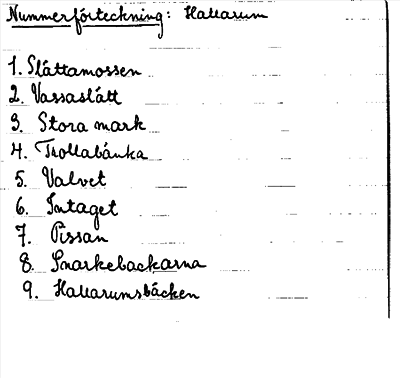 Nummerförteckning: Hallarum
1. Slåttamossen
2. Vassaslått
3. Stora mark
4. Trollabänka
5. Valvet
6. Intaget
7. Pissan
8. Snarkebackarna
9. Hallarumsbäcken